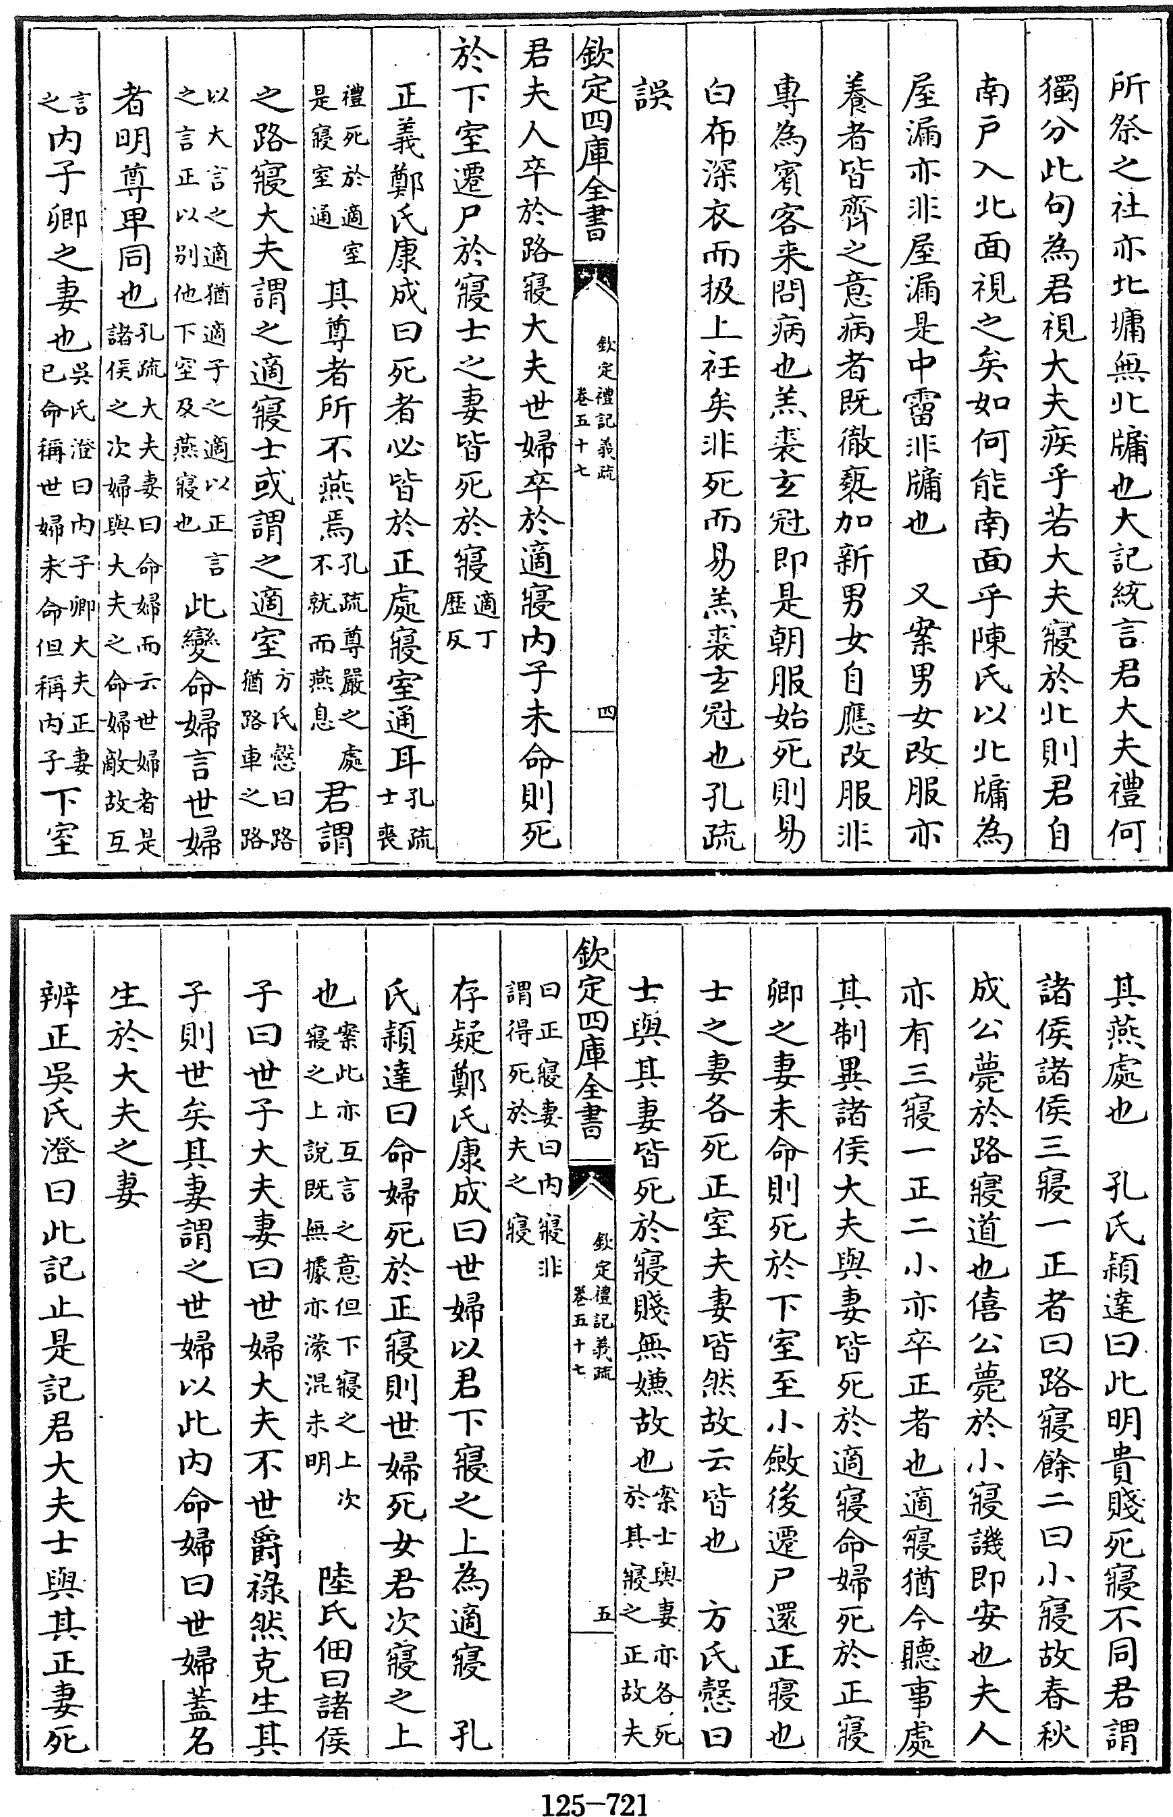 所祭之社亦北墉無北牖也大記統言君大夫禮何
獨分此句為君視大夫疾乎若大夫寢於北則君自
南戶入北面視之矣如何能南面乎陳氏以北牖為
屋漏亦非屋漏是中霤非牖也　又案男女改服亦
養者皆齊之意病者既徹褻加新男女自應改服非
專為賓客来問病也羔裘玄冠即是朝服始死則易
白布深衣而扱上衽矣非死而易羔裘玄冠也孔疏
誤
欽定四庫全書　欽定禮記義疏卷五十七　四
君夫人卒於路寢大夫世婦卒於適寢内子未命則死
於下室遷尸於寢士之妻皆死於寢適丁歷反
正義鄭氏康成曰死者必皆於正處寢室通耳孔疏士喪
禮死於適室是寢室通　其尊者所不燕焉孔疏尊嚴之處不就而燕息　君謂
之路寢大夫謂之適寢士或謂之適室方氏慤曰路猶路車之路
以大言之適猶適子之適以正言之言正以別他下室及燕寢也　此變命婦言世婦
者明尊卑同也孔疏大夫妻曰命婦而云世婦者是諸侯之次婦與大夫之命婦敵故互
言之内子卿之妻也吳氏澄曰内子卿大夫正妻已命稱世婦未命但稱内子下室
其燕處也　孔氏穎達曰此明貴賤死寢不同君謂
諸侯諸侯三寢一正者曰路寢餘二曰小寢故春秋
成公薨於路寢道也僖公薨於小寢譏即安也夫人
亦有三寢一正二小亦卒正者也適寢猶今聽事處
其制異諸侯大夫與妻皆死於適寢命婦死於正寢
卿之妻未命則死於下室至小斂後遷尸還正寢也
士之妻各死正室夫妻皆然故云皆也　方氏慤曰
士與其妻皆死於寢賤無嫌故也案士與妻亦各死於其寢之正故夫
欽定四庫全書　欽定禮記義疏卷五十七　五
曰正寢妻曰内寢非謂得死於夫之寢
存疑鄭氏康成曰世婦以君下寢之上為適寢　孔
氏穎達曰命婦死於正寢則世婦死女君次寢之上
也案此亦互言之意但下寢之上次寢之上說既無據亦濛混未明　陸氏佃曰諸侯
子曰世子大夫妻曰世婦大夫不世爵祿然克生其
子則世矣其妻謂之世婦以此内命婦曰世婦蓋名
生於大夫之妻
辨正吳氏澄曰此記止是記君大夫士與其正妻死
125-721